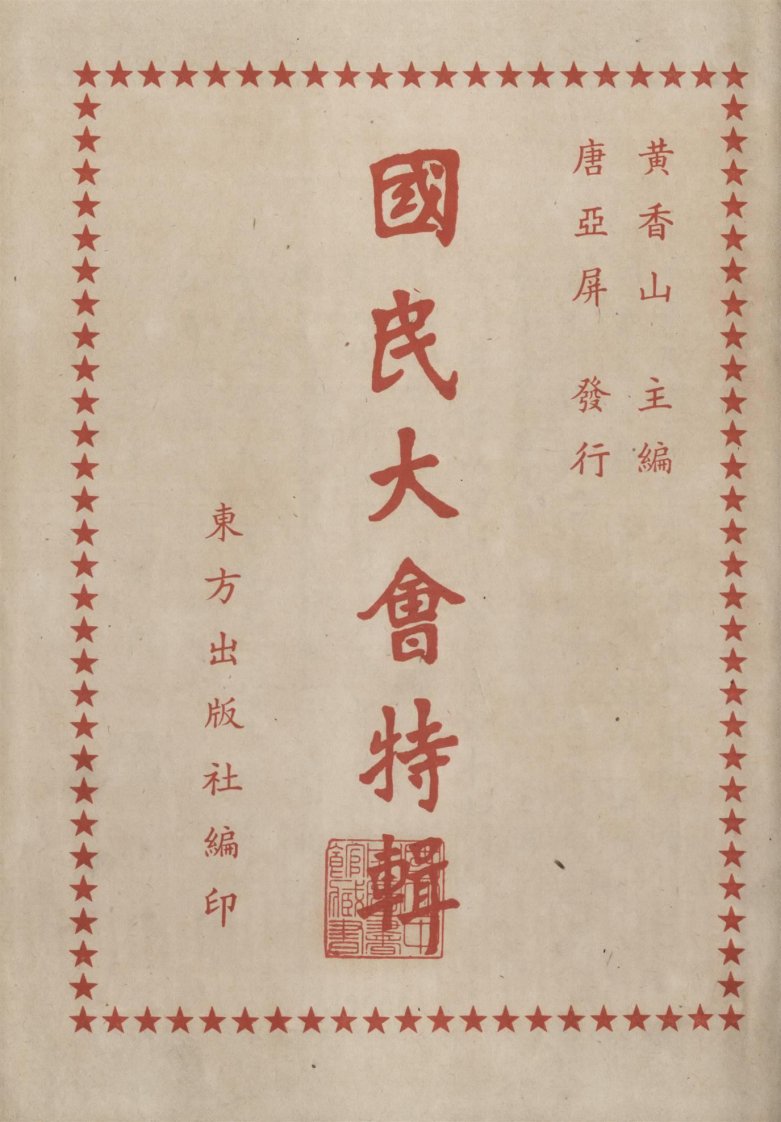 黄香山 主編
唐亞屏 發行
國民大會特輯
東方出版社編印